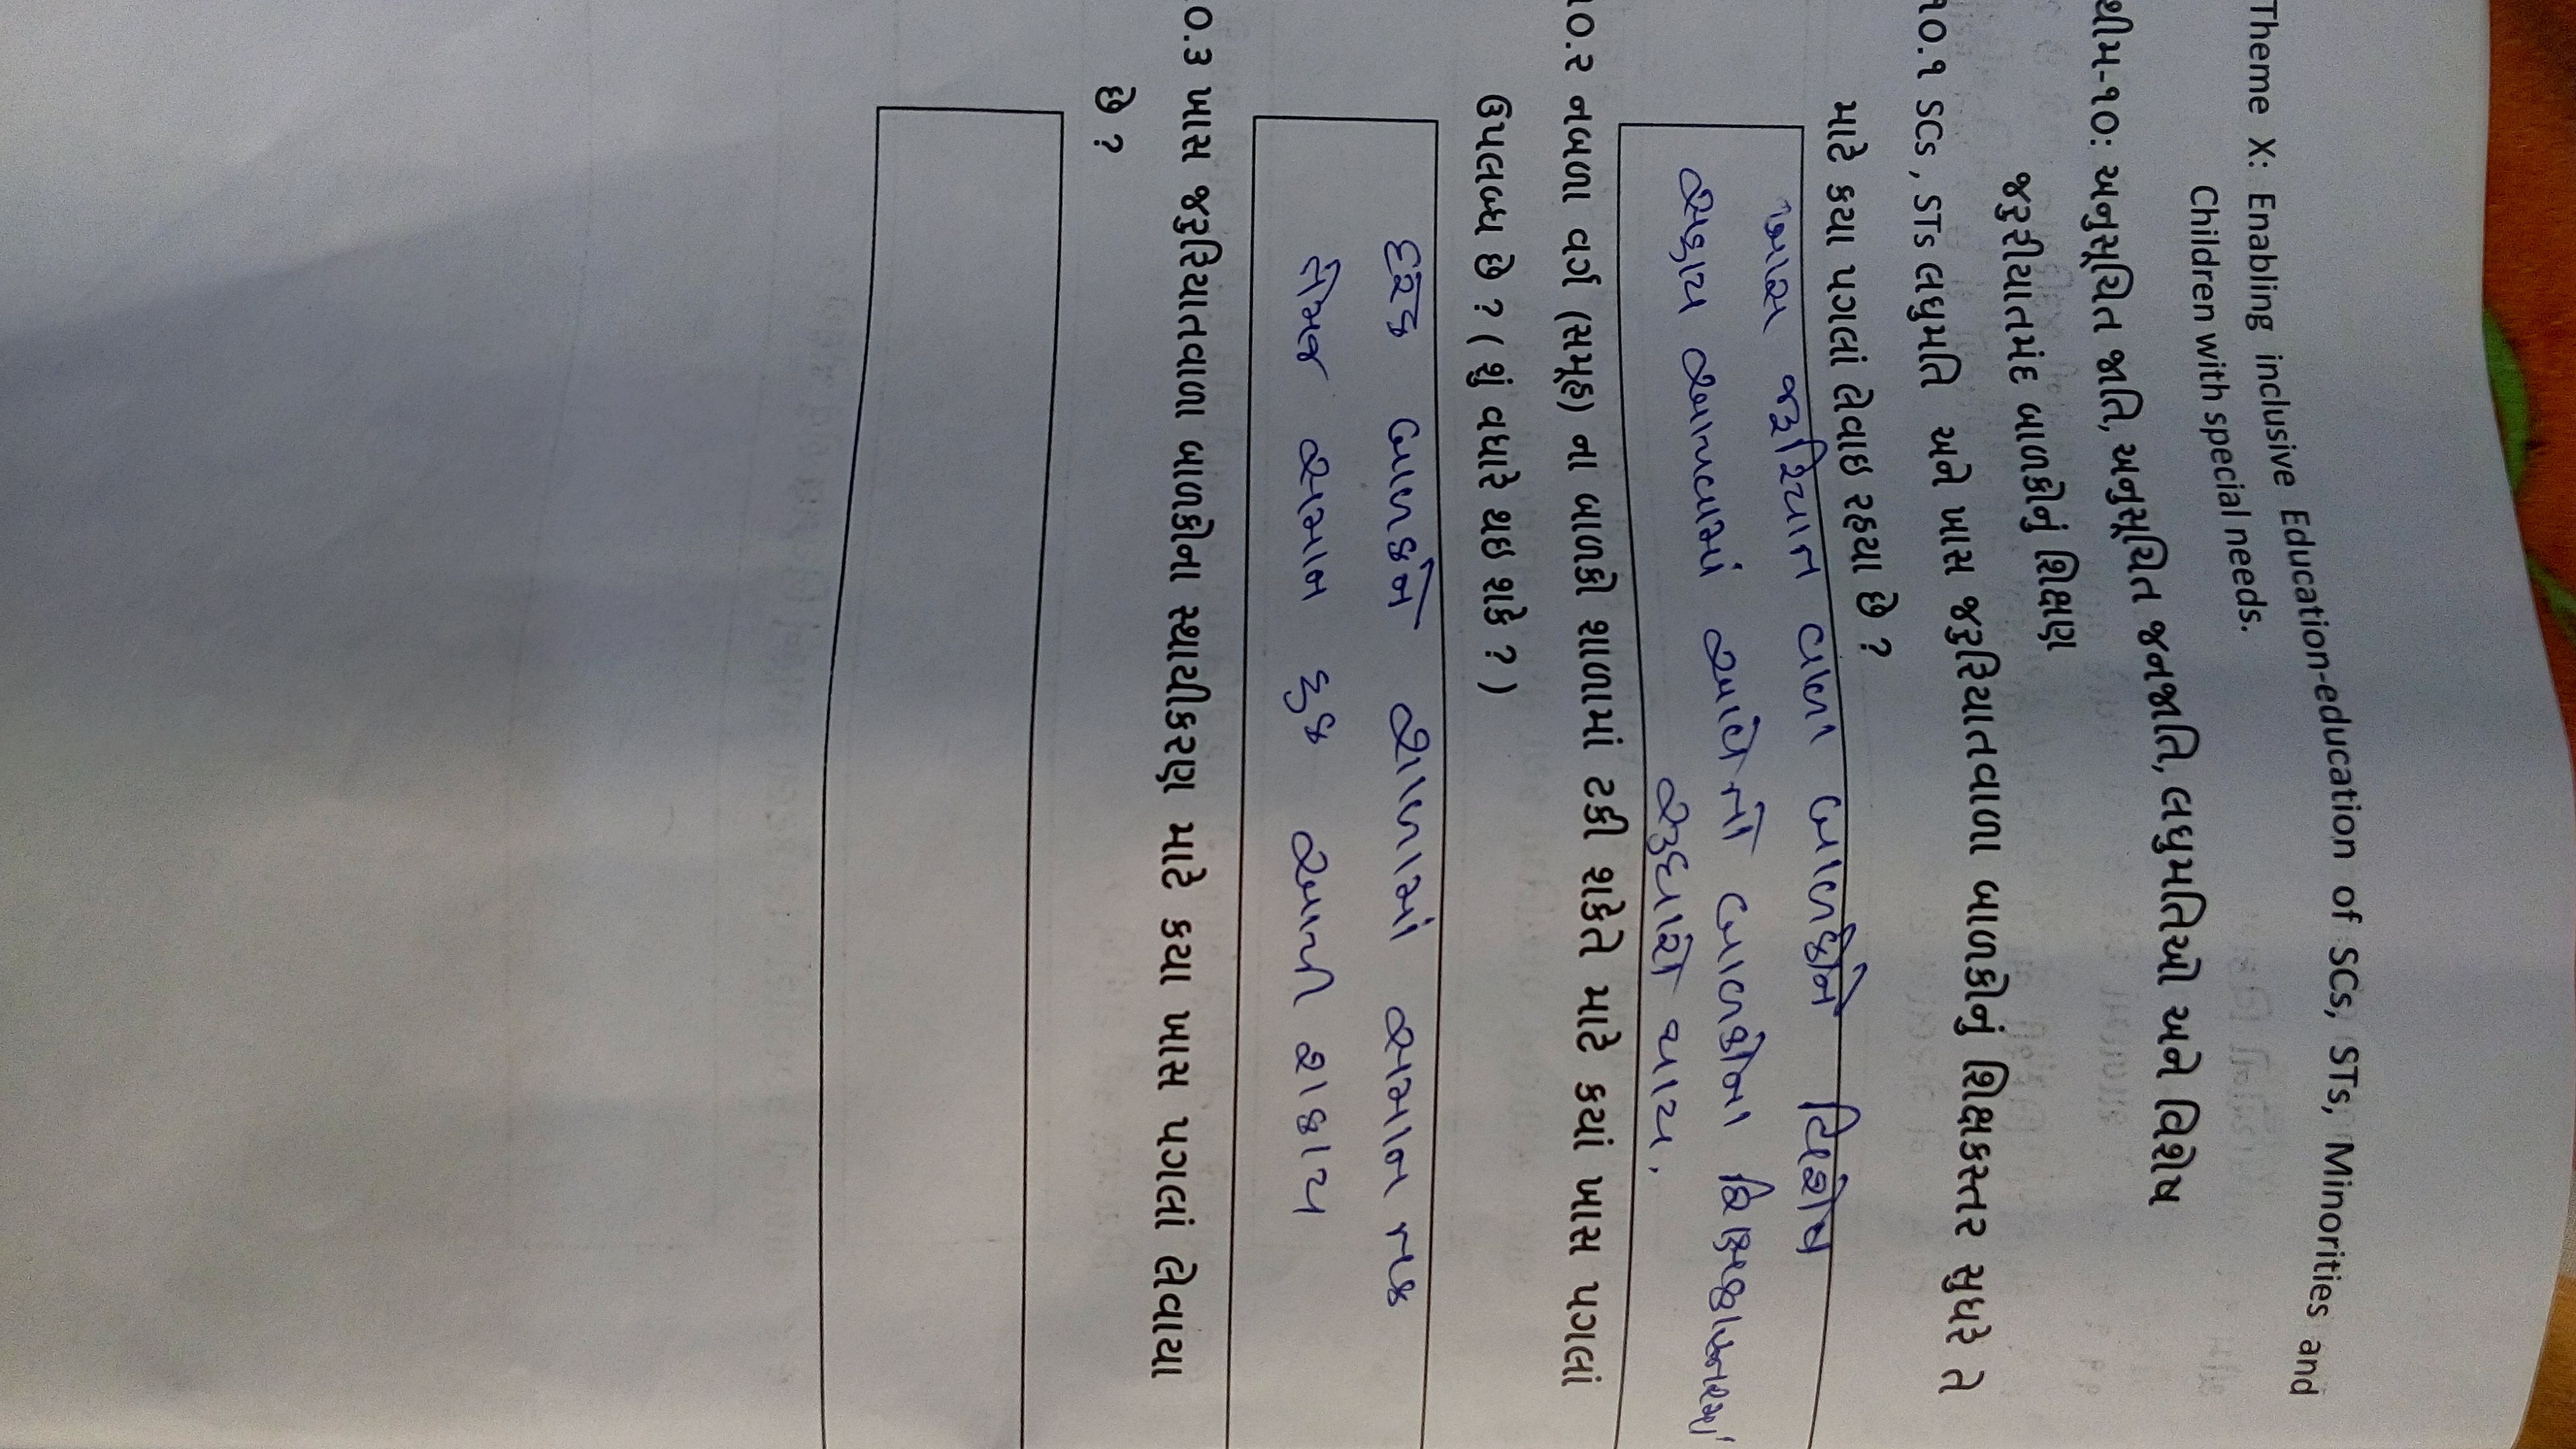 Theme X: Enabling inclusive Education-education of SCs, STs, Minorities and
Children with special needs.
થીમ-૧૦: અનુસૂચિત જાતિ, અનુસૂચિત જનજાતિ, લઘુમતિઓ અને વિશેષ
જરૂરીયાતમંદ બાળકોનું શિક્ષણ
૧૦.૧ SCs , STs લઘુમતિ અને ખાસ જરૂરિયાતવાળા બાળકોનું શિક્ષકસ્તર સુધરે તે
માટે કયા પગલાં લેવાઇ રહ્યા છે ?
ખાસ જરૂરિયાત વાળા બાળકોને વિશેષ
સહાય આપવામાં આવે તો બાળકોના
સુધારો થાય.
૧૦.૨ નબળા વર્ગ (સમૂહ) ના બાળકો શાળામાં ટકી શકેતે માટે કયાં ખાસ પગલાં
ઉપલબ્ધ છે ? ( શું વધારે થઇ શકે ? )
દરેક બાળકને શાળામાં સમાન તક
તેમજ સમાન હક આપી શકાય
૦.૩ ખાસ જરૂરિયાતવાળા બાળકોના સ્થાયીકરણ માટે કયા ખાસ પગલાં લેવાયા
છે ?